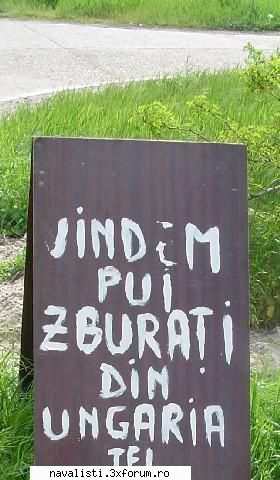 VINDEM
PUI
ZBURAȚI
DIN
UNGARIA
TEL
navalisti.3xforum.ro